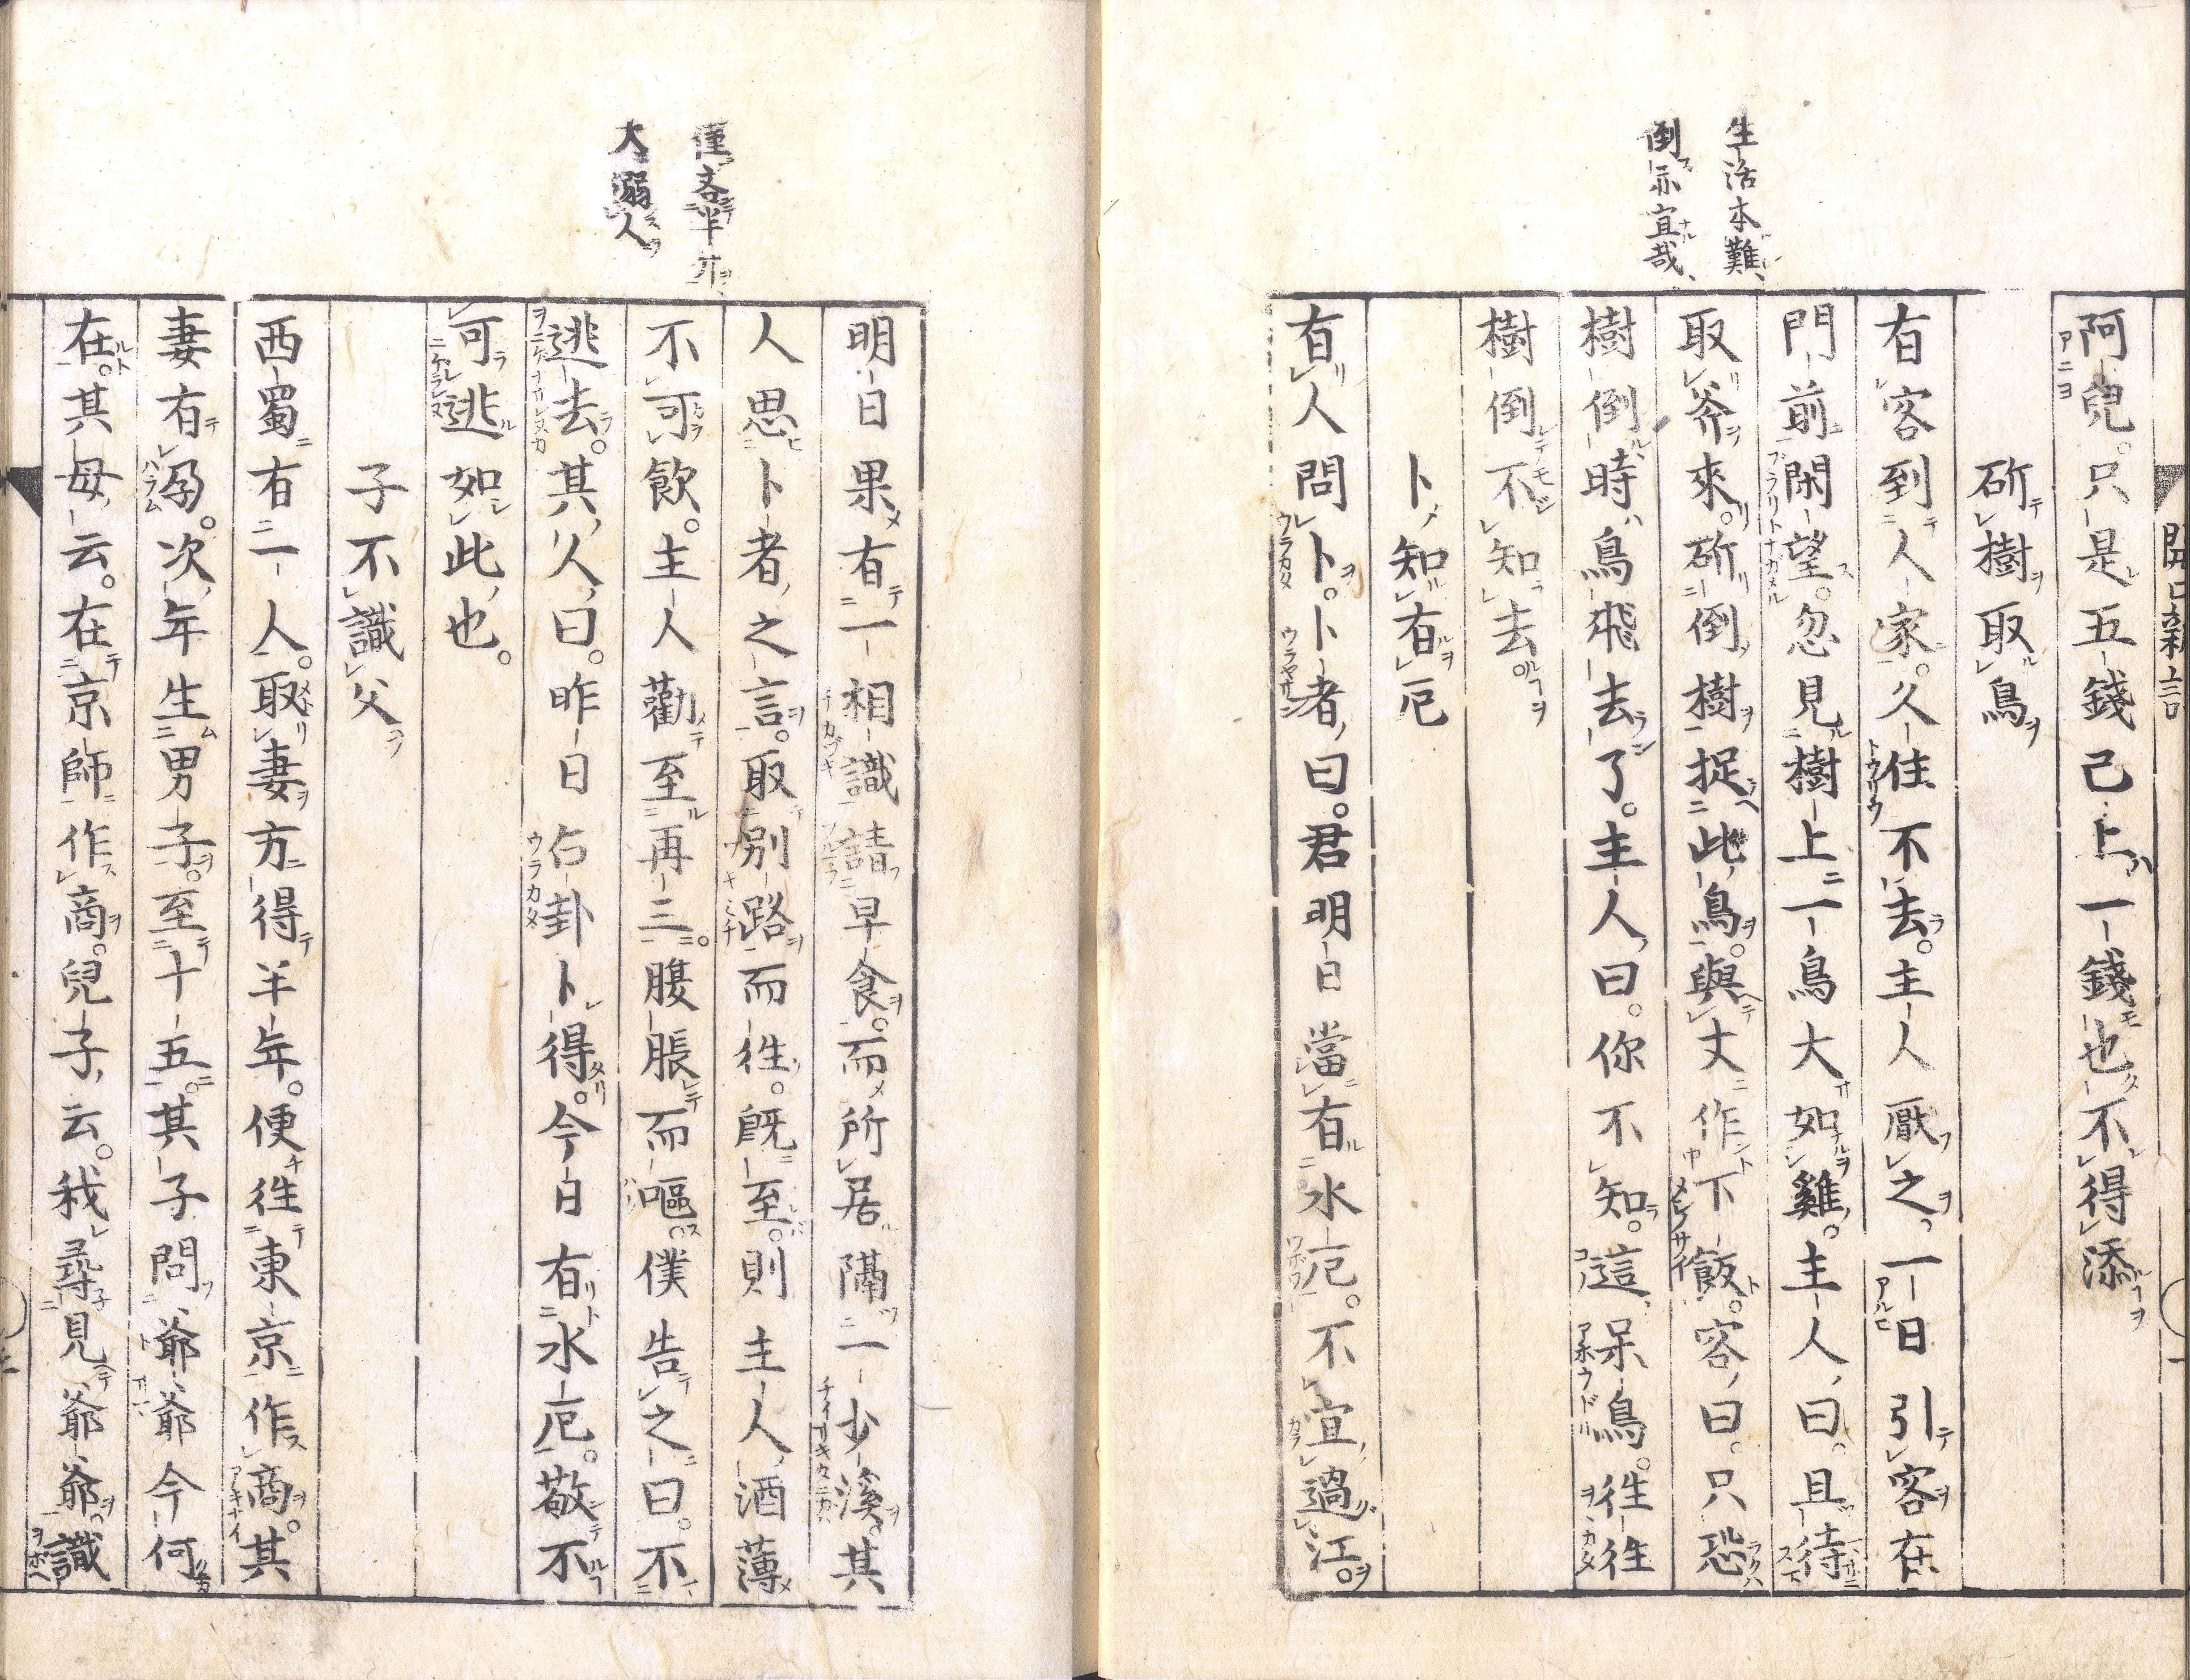 開口新語
阿兒。只是五錢己上一錢也不得添
斫樹取鳥
有客到人家。久住不去。主人厭之、一日引客在
門前閑望。忽見樹上一鳥大如雞。主人曰。且待
取斧來。斫倒樹捉此鳥。與丈作下飯。客曰。只恐
樹倒時鳥飛去了。主人曰。你不知。這呆鳥。往往
樹倒不知去。
卜知有厄
有人問卜。卜者曰。君明日當有水厄。不宜過江。
生活本難、
倒示宜哉、
明日果有一相識請早食。而所居隔一少溪。其
人思卜者之言。取別路而往。旣至。則主人酒薄
不可飲。主人勸至再三。腹脹而嘔。僕告之曰。不
逃去。其人曰。昨日占卦卜得。今日有水厄。敬不
可逃如此也。
子不識父
西蜀有一人。取妻方得半年。便往東京作商。其
妻有孕。次年生男子。至十五。其子問爺爺今何
在。其母云。在京師作商。兒子云。我尋見爺爺識
僅吝半
大溺人